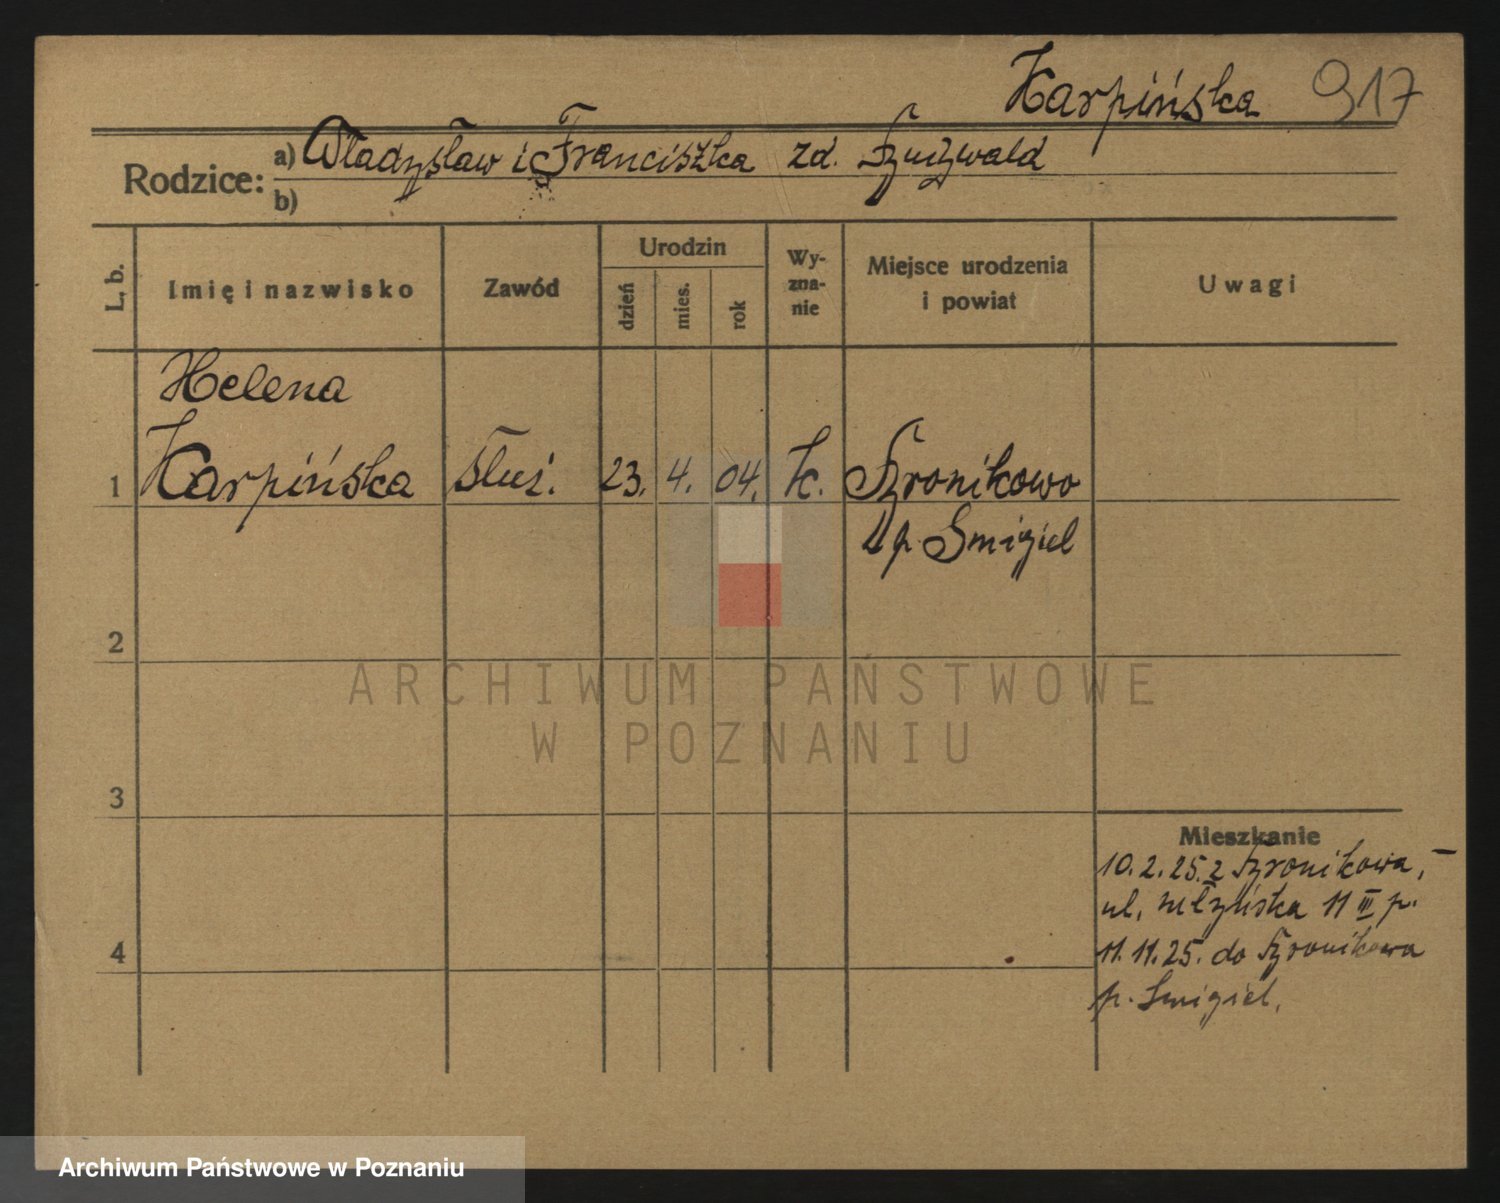 Karpińska 917
Rodzice:
a) Władysław i Franciszka zd.
b)
L. b.
Imię i nazwisko
Zawód
Urodzin
dzień
mies.
rok
Wy-
zna-
nie
Miejsce urodzenia
i powiat
Uwagi
Helena
1 Karpińska służ. 23. 4. 04. k. Bronikowo
p. Smigiel
2
3
4
Mieszkanie
10.2.25. z Bronikowa,
ul. 11 III p.
11.11.25. do Bronikowa
p. Smigiel.
ARCHIWUM PAŃSTWOWE
W POZNANIU
Archiwum Państwowe w Poznaniu